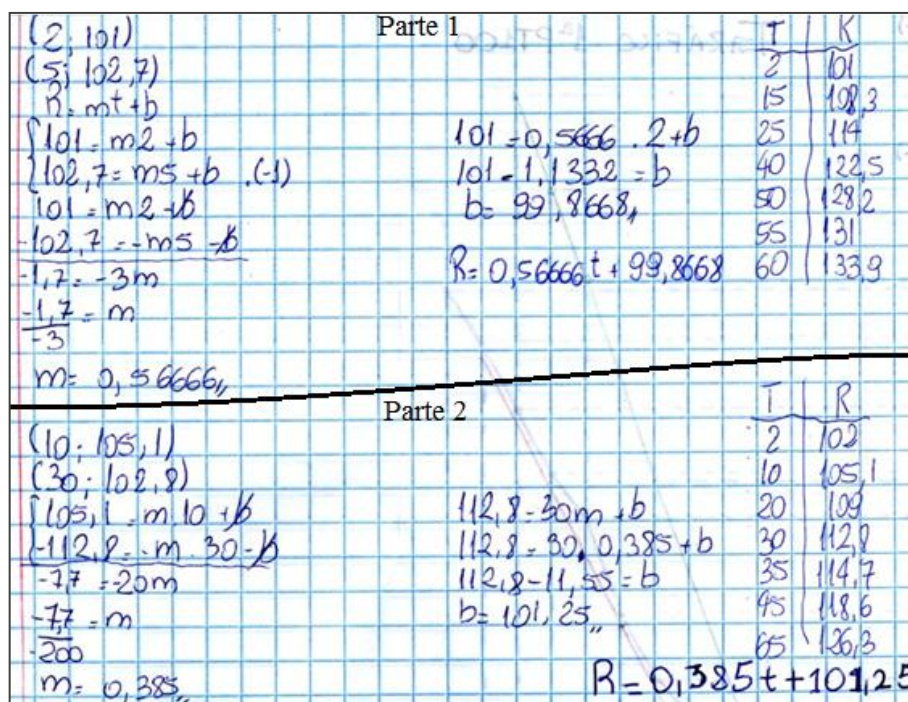 Parte 1
(2; 101)
(5; 102,7)
R = mt + b
101 = m2 + b
102,7 = m5 + b .(-1)
101 = m2 + b
-102,7 = -m5 - b
-1,7 = -3m
-1,7 = m
-3
m = 0,56666,,
101 = 0,5666 . 2 + b
101 - 1,1332 = b
b = 99,8668,,
R = 0,56666t + 99,8668
T | R
2 | 101
15 | 108,3
25 | 114
40 | 122,5
50 | 128,2
55 | 131
60 | 133,9
Parte 2
(10; 105,1)
(30; 102,8)
105,1 = m.10 + b
-112,8 = -m . 30 - b
-7,7 = -20m
-7,7 = m
-200
m = 0,385,,
112,8 = 30m + b
112,8 = 30. 0,385 + b
112,8 - 11,55 = b
b = 101,25,,
T | R
2 | 102
10 | 105,1
20 | 109
30 | 112,8
35 | 114,7
45 | 118,6
65 | 126,3
R = 0,385t + 101,25